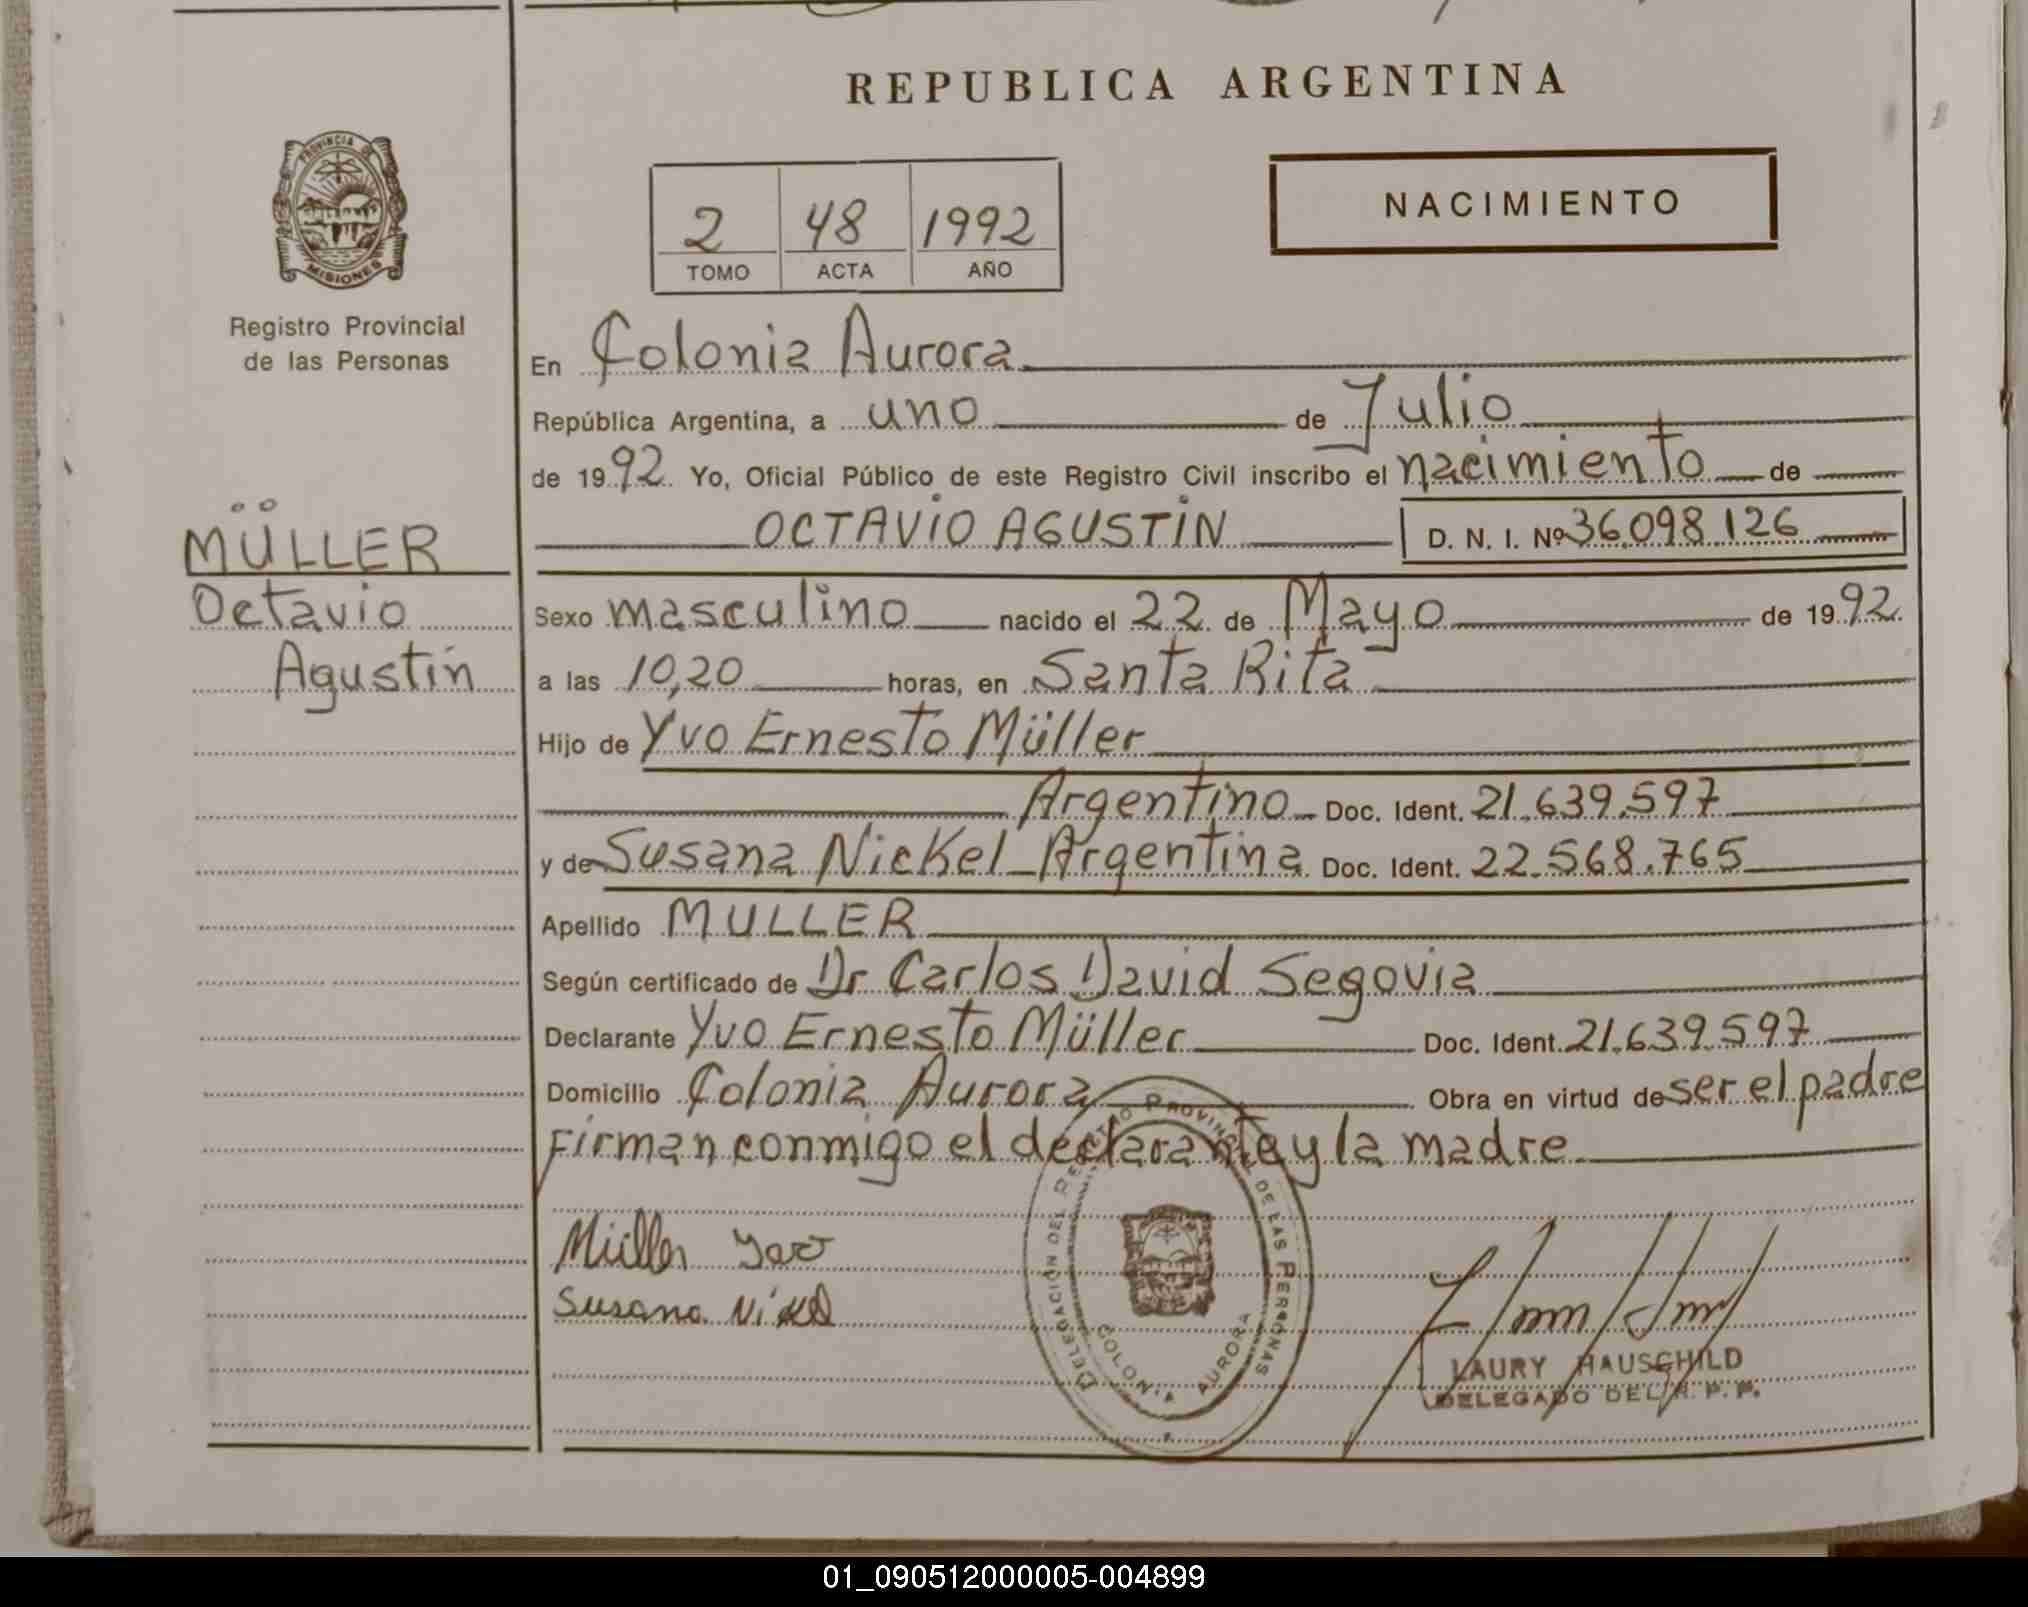 REPUBLICA ARGENTINA
PROVINCIA DE
MISIONES
Registro Provincial
de las Personas
NACIMIENTO
2 48 1992
TOMO ACTA AÑO
En Colonia Aurora
República Argentina, a uno de Julio
de 1992 Yo, Oficial Público de este Registro Civil inscribo el nacimiento de
OCTAVIO AGUSTIN D. N. I. Nº 36.098.126
MÜLLER
Octavio
Agustín
Sexo masculino nacido el 22 de Mayo de 1992.
a las 10,20 horas, en Santa Rita
Hijo de Yvo Ernesto Müller
Argentino Doc. Ident. 21.639.597
y de Susana Nickel Argentina Doc. Ident. 22.568.765
Apellido MULLER
Según certificado de Dr Carlos David Segovia
Declarante Yvo Ernesto Müller Doc. Ident. 21.639.597
Domicilio Colonia Aurora Obra en virtud de ser el padre
Firman conmigo el declarante y la madre
DELEGACIÓN DEL REGISTRO PROVINCIAL DE LAS PERSONAS
COLONIA AURORA
Müller
Susana
LAURY HAUSCHILD
DELEGADO DEL R. P. P.
01_090512000005-004899